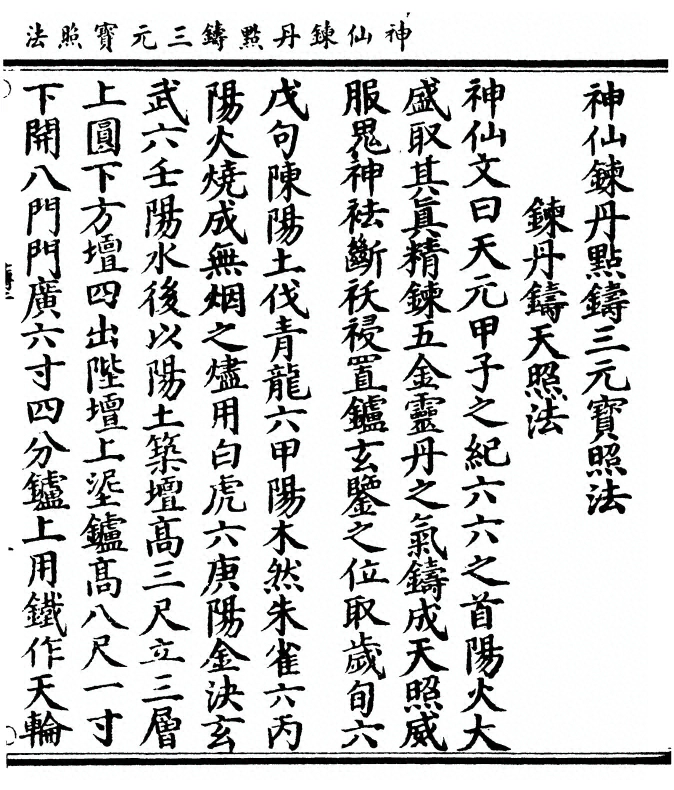 神仙鍊丹點鑄三元寶照法
神仙鍊丹點鑄三元寶照法
鍊丹鑄天照法
神仙文曰天元甲子之紀六六之首陽火大
盛取其眞精鍊五金靈丹之氣鑄成天照威
服鬼神袪斷祅祲置鑪玄鑒之位取歲旬六
戊句陳陽土伐青龍六甲陽木然朱雀六丙
陽火燒成無烟之燼用白虎六庚陽金決玄
武六壬陽水後以陽土築壇高三尺立三層
上圓下方壇四出陛壇上埿鑪高八尺一寸
下開八門門廣六寸四分鑪上用鐵作天輪